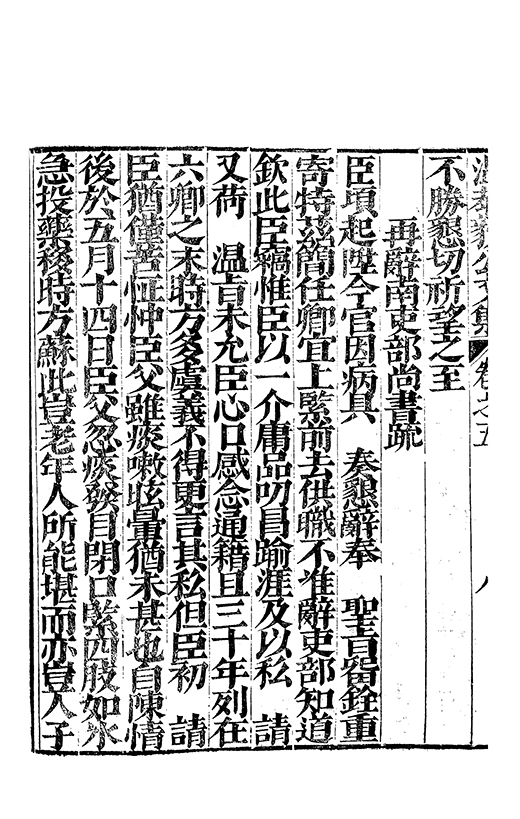 溫恭毅公文集 卷之五 八
不勝懇切祈望之至
再辭南吏部尚書疏
臣頃起陞今官因病具 奏懇辭奉 聖旨留銓重
寄特茲簡任卿宜上緊前去供職不准辭吏部知道
欽此臣竊惟臣以一介庸品叨冒踰涯及以私 請
又荷 溫旨未允臣心口感念通籍且三十年列在
六卿之末時方多虞義不得更言其私但臣初 請
臣猶僅苦怔忡臣父雖痰嗽眩暈猶未甚也自陳情
後於五月十四日臣父忽痰發目閉口緊四肢如氷
急投藥移時方蘇此豈老年人所能堪而亦豈人子